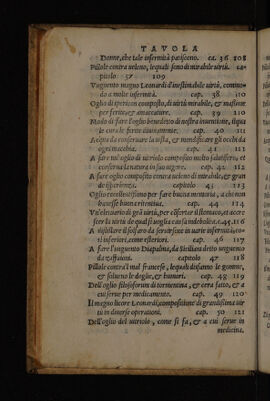 TAVOLA
Donne, che tale infermità patiscono. ca. 36 108
Pillole contra ueleno, le quali sono di mirabile uirtù. ca-
pitolo 37 109
Vnguento magno Leonardi d'inestimabile uirtù, commo-
do a molte infermità. cap. 38 110
Oglio di ipericon composto, di uirtù mirabile, & massime
per ferite & amaccature. cap. 39 110
Modo di fare l'oglio benedetto di nostra inuentione, il qua
le cura le ferite diuinamente. cap. 40 111
Acqua da conseruare la uista, & creder gli occhi da
ogni macchia. cap. 41 111
A fare un'oglio di uetriolo composto molto salutifero, et
conserua la natura in suo uigore. cap. 42 112
A fare oglio composito contra ueleno di mirabil, & gran
de isperienza. capitolo 43 113
Oglio eccellentissimo per fare buona memoria, a chi non
l'hauesse buona retentiua. cap. 44 114
di grā uirtù, per cōfortar il stomaco, et accre
scer la uirtù
A distillare il solfaro da seruirsene in uarie infermità, in
teriori, come esteriori. cap. 46 117
A fare l'unguento Diapalma, da Siciliani detto unguento
da caffuoni. capitolo 47 118
Pillole contra il mal francese, le quali disfanno le gomme,
& soluno le doglie, & humori. cap. 48 119
Dell'oglio filosoforum di tormentina, & cera fatto, & a
cui serue per medicamento. cap. 49 120
Il magno licore Leonardi, compositione di grandissima uir
tù in diuerse operationi. cap. 50 121
Dell'oglio del uitriolo, come si fa, & a cui serue in
medicina.